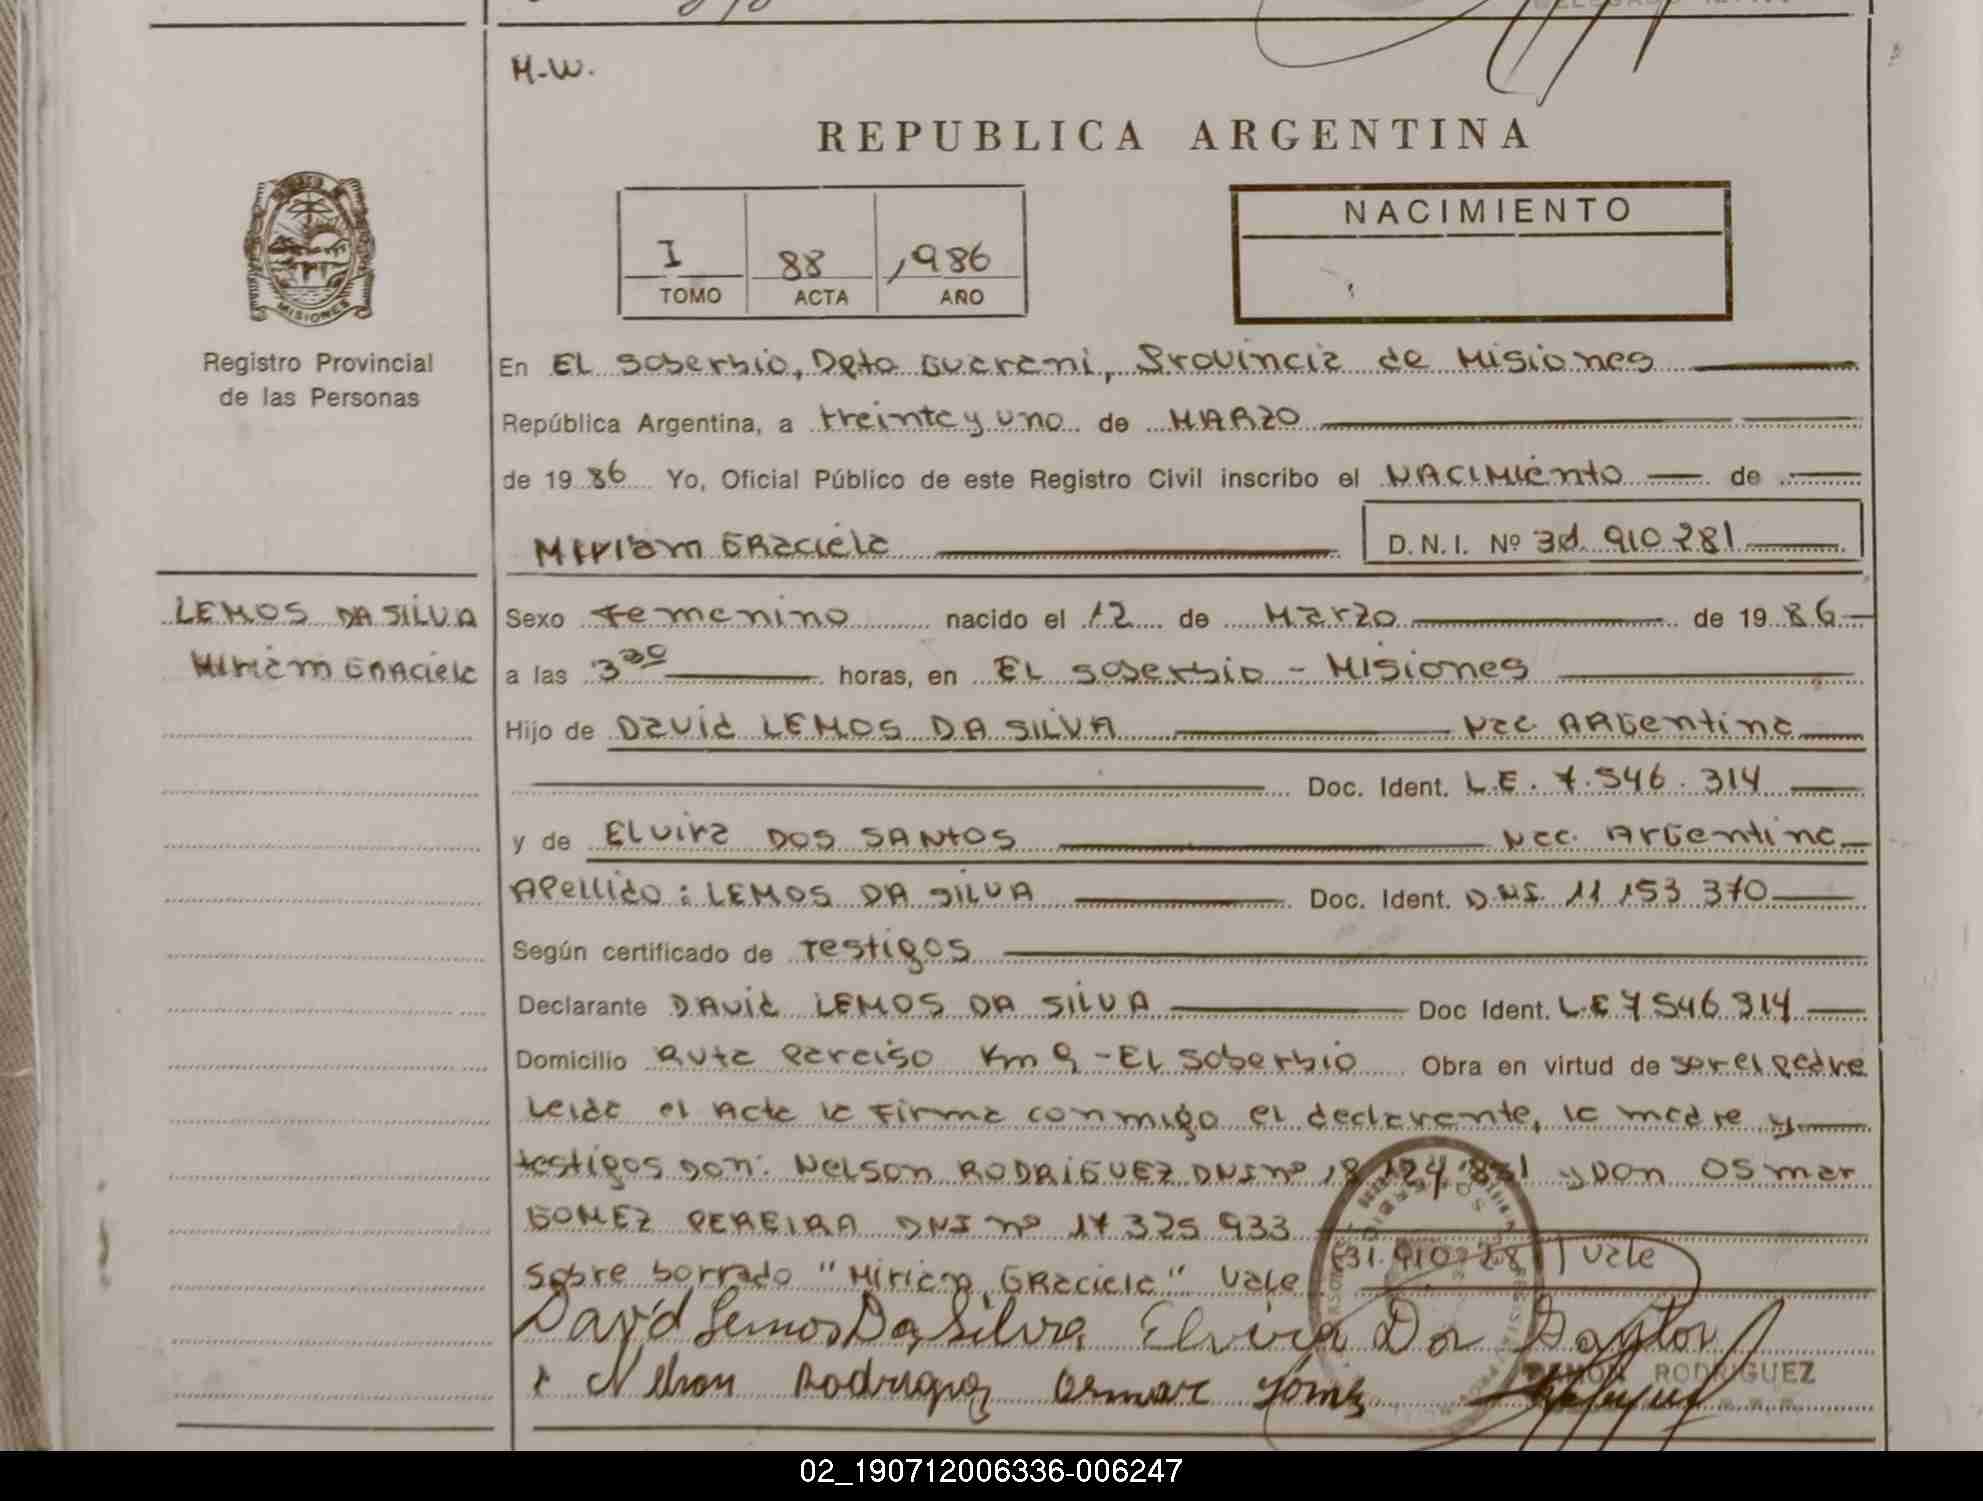 H-W.
REPUBLICA ARGENTINA
I 88 1986
TOMO ACTA AÑO
NACIMIENTO
MISIONES
Registro Provincial
de las Personas
En EL Soberbio, Dpto Guarani, Provincia de Misiones
República Argentina, a treinta y uno de MARZO
de 1986 Yo, Oficial Público de este Registro Civil inscribo el NACIMiento de
Miriam GRaciela
D.N.I. Nº 31. 910 281
LEMOS DA SILVA
Miriam GRAciela
Sexo Femenino nacido el 12 de Marzo de 1986
a las 3 30 horas, en EL Soberbio - Misiones
Hijo de David LEMOS DA SILVA Nac. ARGentina
Doc. Ident. L.E. 7.546.314
y de Elvira DOS SANtOS Nac. ArGentina
Apellido: LEMOS DA SILVA Doc. Ident. D.N.I. 11 153 370
Según certificado de Testigos
Declarante DAVid LEMOS DA SILVA Doc Ident. L.E 7 546 314
Domicilio Ruta Paraiso Km 9 - EL Soberbio Obra en virtud de ser el padre
Leida el Acta la Firma conmigo el declarante, la madre y
testigos Don: Nelson RODRIGUEZ DNI nº 18 124 831 y Don Osmar
GOMEZ PEREIRA DNI nº 17 325 933
Sobre borrado "Miriam, GRaciela" Vale 31.910.281 Vale
David Lemos Da Silva Elvira Dos Santos
Nelson Rodriguez Osmar Gómez
RAMON RODRIGUEZ
02_190712006336-006247